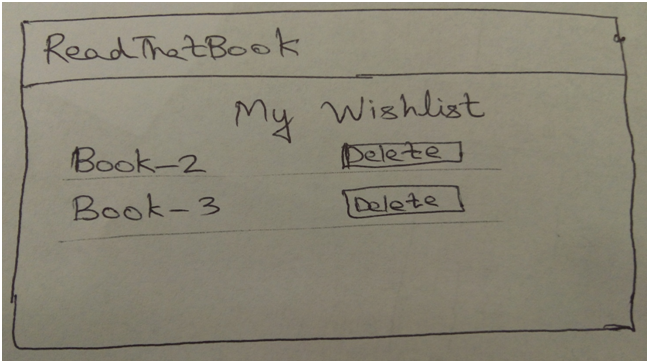 ReadThatBook
My Wishlist
Book-2 Delete
Book-3 Delete